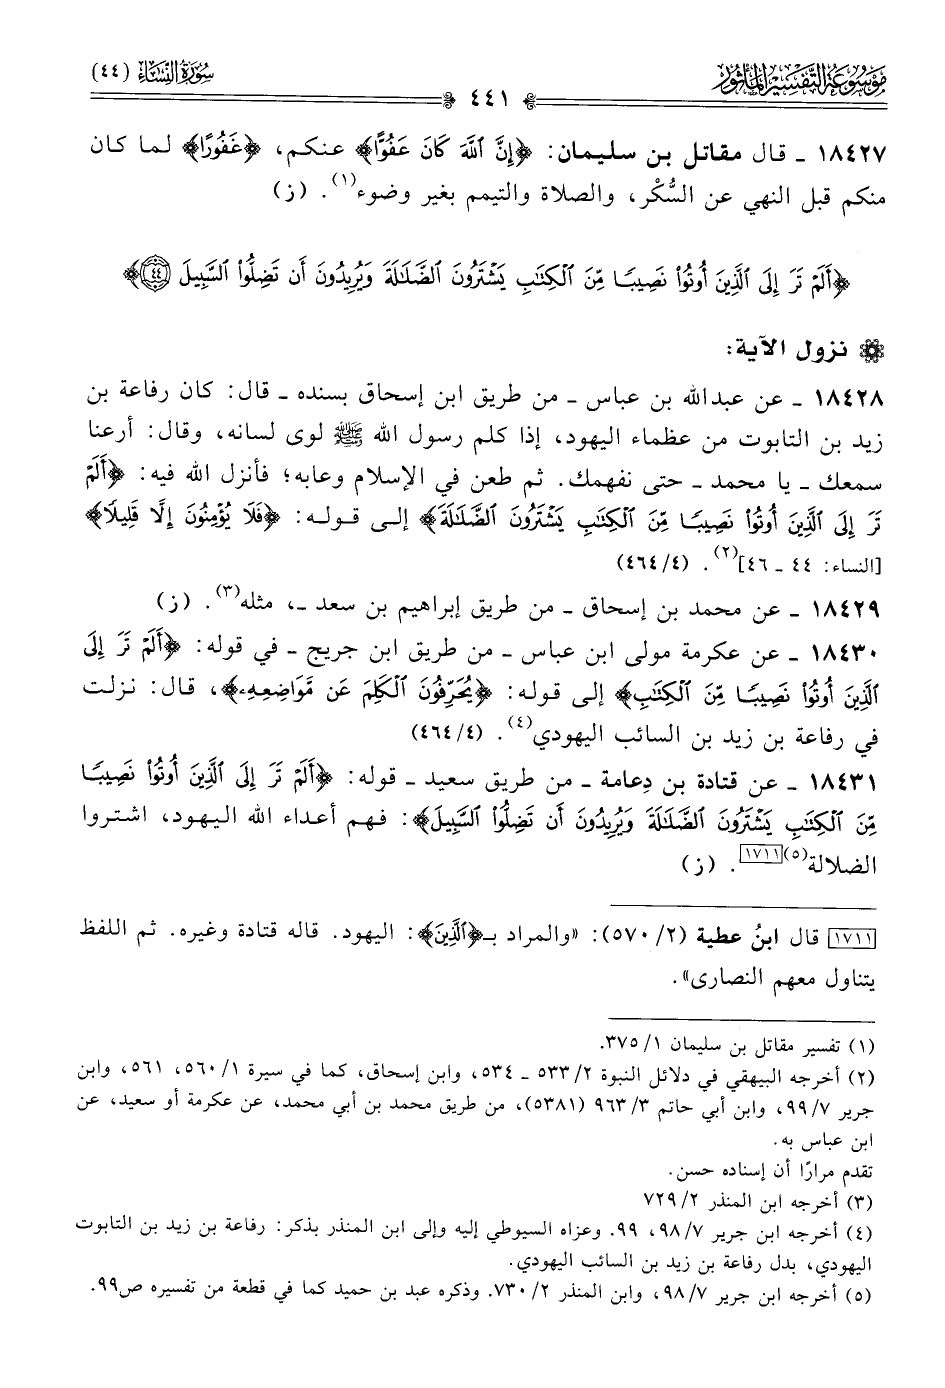 مَوْسُوعَة التَّفْسِيْر المَأْثُور
سُورَةُ النِّسَاءِ (٤٤)
٤٤١
١٨٤٢٧ ـ قال مقاتل بن سليمان: ﴿إِنَّ ٱللَّهَ كَانَ عَفُوًّا﴾ عنكم، ﴿غَفُورًا﴾ لما كان
منكم قبل النهي عن السُّكْر، والصلاة والتيمم بغير وضوء(١). (ز)
﴿أَلَمْ تَرَ إِلَى ٱلَّذِينَ أُوتُوا۟ نَصِيبًا مِّنَ ٱلْكِتَٰبِ يَشْتَرُونَ ٱلضَّلَٰلَةَ وَيُرِيدُونَ أَن تَضِلُّوا۟ ٱلسَّبِيلَ ٤٤﴾
نزول الآية:
١٨٤٢٨ ـ عن عبدالله بن عباس ـ من طريق ابن إسحاق بسنده ـ قال: كان رفاعة بن
زيد بن التابوت من عظماء اليهود، إذا كلم رسول الله ﷺ لوى لسانه، وقال: أرعنا
سمعك ـ يا محمد ـ حتى نفهمك. ثم طعن في الإسلام وعابه؛ فأنزل الله فيه: ﴿أَلَمْ
تَرَ إِلَى ٱلَّذِينَ أُوتُوا۟ نَصِيبًا مِّنَ ٱلْكِتَٰبِ يَشْتَرُونَ ٱلضَّلَٰلَةَ﴾ إلى قوله: ﴿فَلَا يُؤْمِنُونَ إِلَّا قَلِيلًا﴾
[النساء: ٤٤ ـ ٤٦](٢). (٤/٤٦٤)
١٨٤٢٩ ـ عن محمد بن إسحاق ـ من طريق إبراهيم بن سعد ـ، مثله(٣). (ز)
١٨٤٣٠ ـ عن عكرمة مولى ابن عباس ـ من طريق ابن جريج ـ في قوله: ﴿أَلَمْ تَرَ إِلَى
ٱلَّذِينَ أُوتُوا۟ نَصِيبًا مِّنَ ٱلْكِتَٰبِ﴾ إلى قوله: ﴿يُحَرِّفُونَ ٱلْكَلِمَ عَن مَّوَاضِعِهِۦ﴾، قال: نزلت
في رفاعة بن زيد بن السائب اليهودي(٤). (٤/٤٦٤)
١٨٤٣١ ـ عن قتادة بن دِعامة ـ من طريق سعيد ـ قوله: ﴿أَلَمْ تَرَ إِلَى ٱلَّذِينَ أُوتُوا۟ نَصِيبًا
مِّنَ ٱلْكِتَٰبِ يَشْتَرُونَ ٱلضَّلَٰلَةَ وَيُرِيدُونَ أَن تَضِلُّوا۟ ٱلسَّبِيلَ﴾: فهم أعداء الله اليهود، اشتروا
الضلالة(٥)[١٧١١]. (ز)
[١٧١١] قال ابنُ عطية (٢/ ٥٧٠): «والمراد بـ﴿ٱلَّذِينَ﴾: اليهود. قاله قتادة وغيره. ثم اللفظ
يتناول معهم النصارى».
(١) تفسير مقاتل بن سليمان ١/ ٣٧٥.
(٢) أخرجه البيهقي في دلائل النبوة ٢/ ٥٣٣ ـ ٥٣٤، وابن إسحاق، كما في سيرة ١/ ٥٦٠، ٥٦١، وابن
جرير ٧/ ٩٩، وابن أبي حاتم ٣/ ٩٦٣ (٥٣٨١)، من طريق محمد بن أبي محمد، عن عكرمة أو سعيد، عن
ابن عباس به.
تقدم مرارًا أن إسناده حسن.
(٣) أخرجه ابن المنذر ٢/ ٧٢٩
(٤) أخرجه ابن جرير ٧/ ٩٨، ٩٩. وعزاه السيوطي إليه وإلى ابن المنذر بذكر: رفاعة بن زيد بن التابوت
اليهودي، بدل رفاعة بن زيد بن السائب اليهودي.
(٥) أخرجه ابن جرير ٧/ ٩٨، وابن المنذر ٢/ ٧٣٠. وذكره عبد بن حميد كما في قطعة من تفسيره ص٩٩.